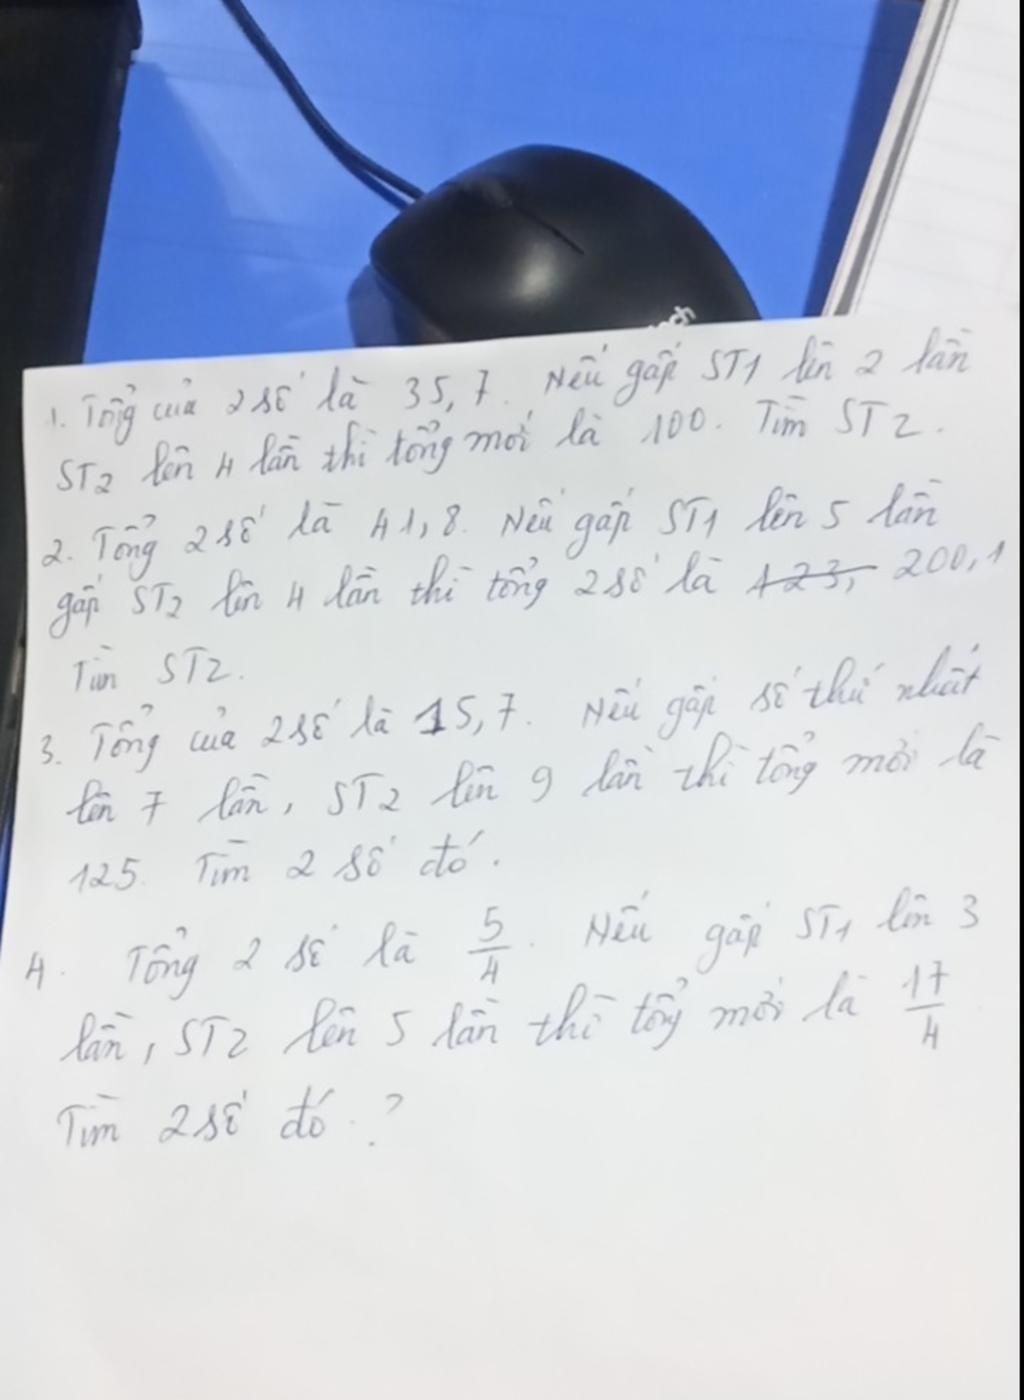 ch
1. Tổng của 2 số là 35,7. Nếu gấp ST1 lên 2 lần
ST2 lên 4 lần thì tổng mới là 100. Tìm ST2.
2. Tổng 2 số là 41,8. Nếu gấp ST1 lên 5 lần
gấp ST2 lên 4 lần thì tổng 2 số là 123, 200,1
Tìm ST2.
3. Tổng của 2 số là 15,7. Nếu gấp số thứ nhất
lên 7 lần, ST2 lên 9 lần thì tổng mới là
125. Tìm 2 số đó.
4. Tổng 2 số là 5/4. Nếu gấp ST1 lên 3
lần, ST2 lên 5 lần thì tổng mới là 17/4
Tìm 2 số đó.?